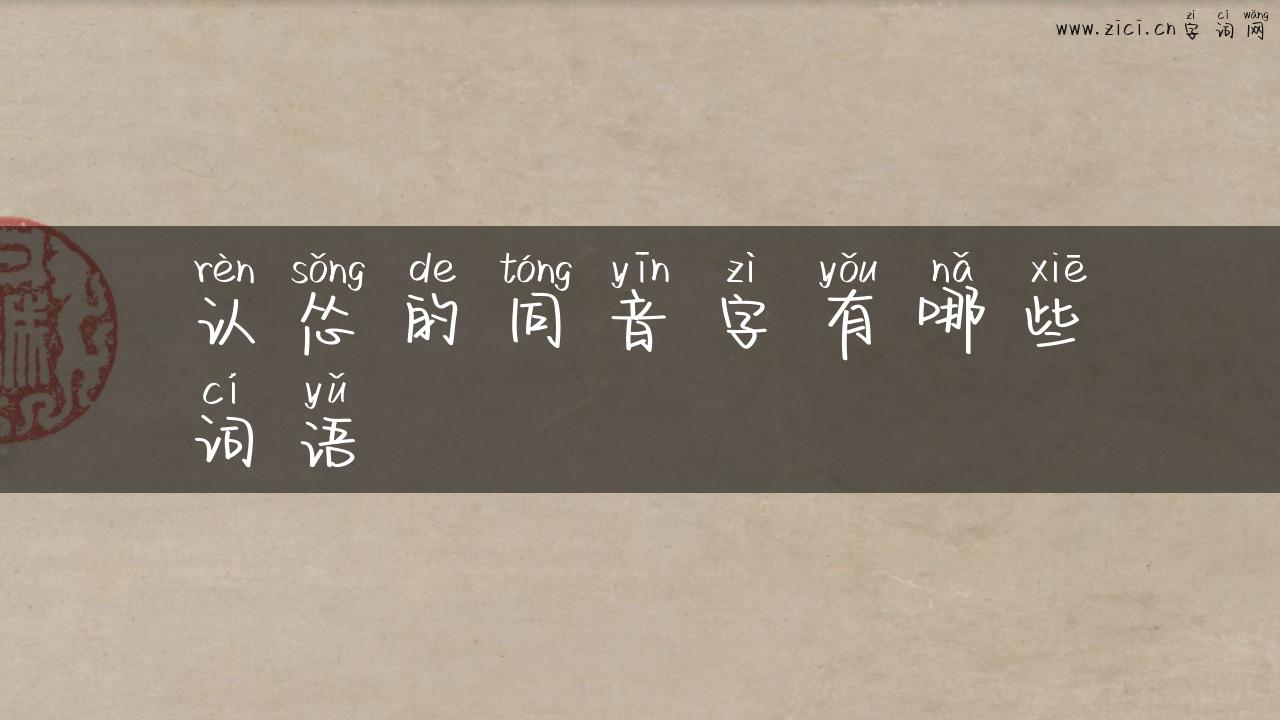 zì cí wǎng
www.zici.cn 字词网
rèn sǒng de tóng yīn zì yǒu nǎ xiē
认怂的同音字有哪些
cí yǔ
词语